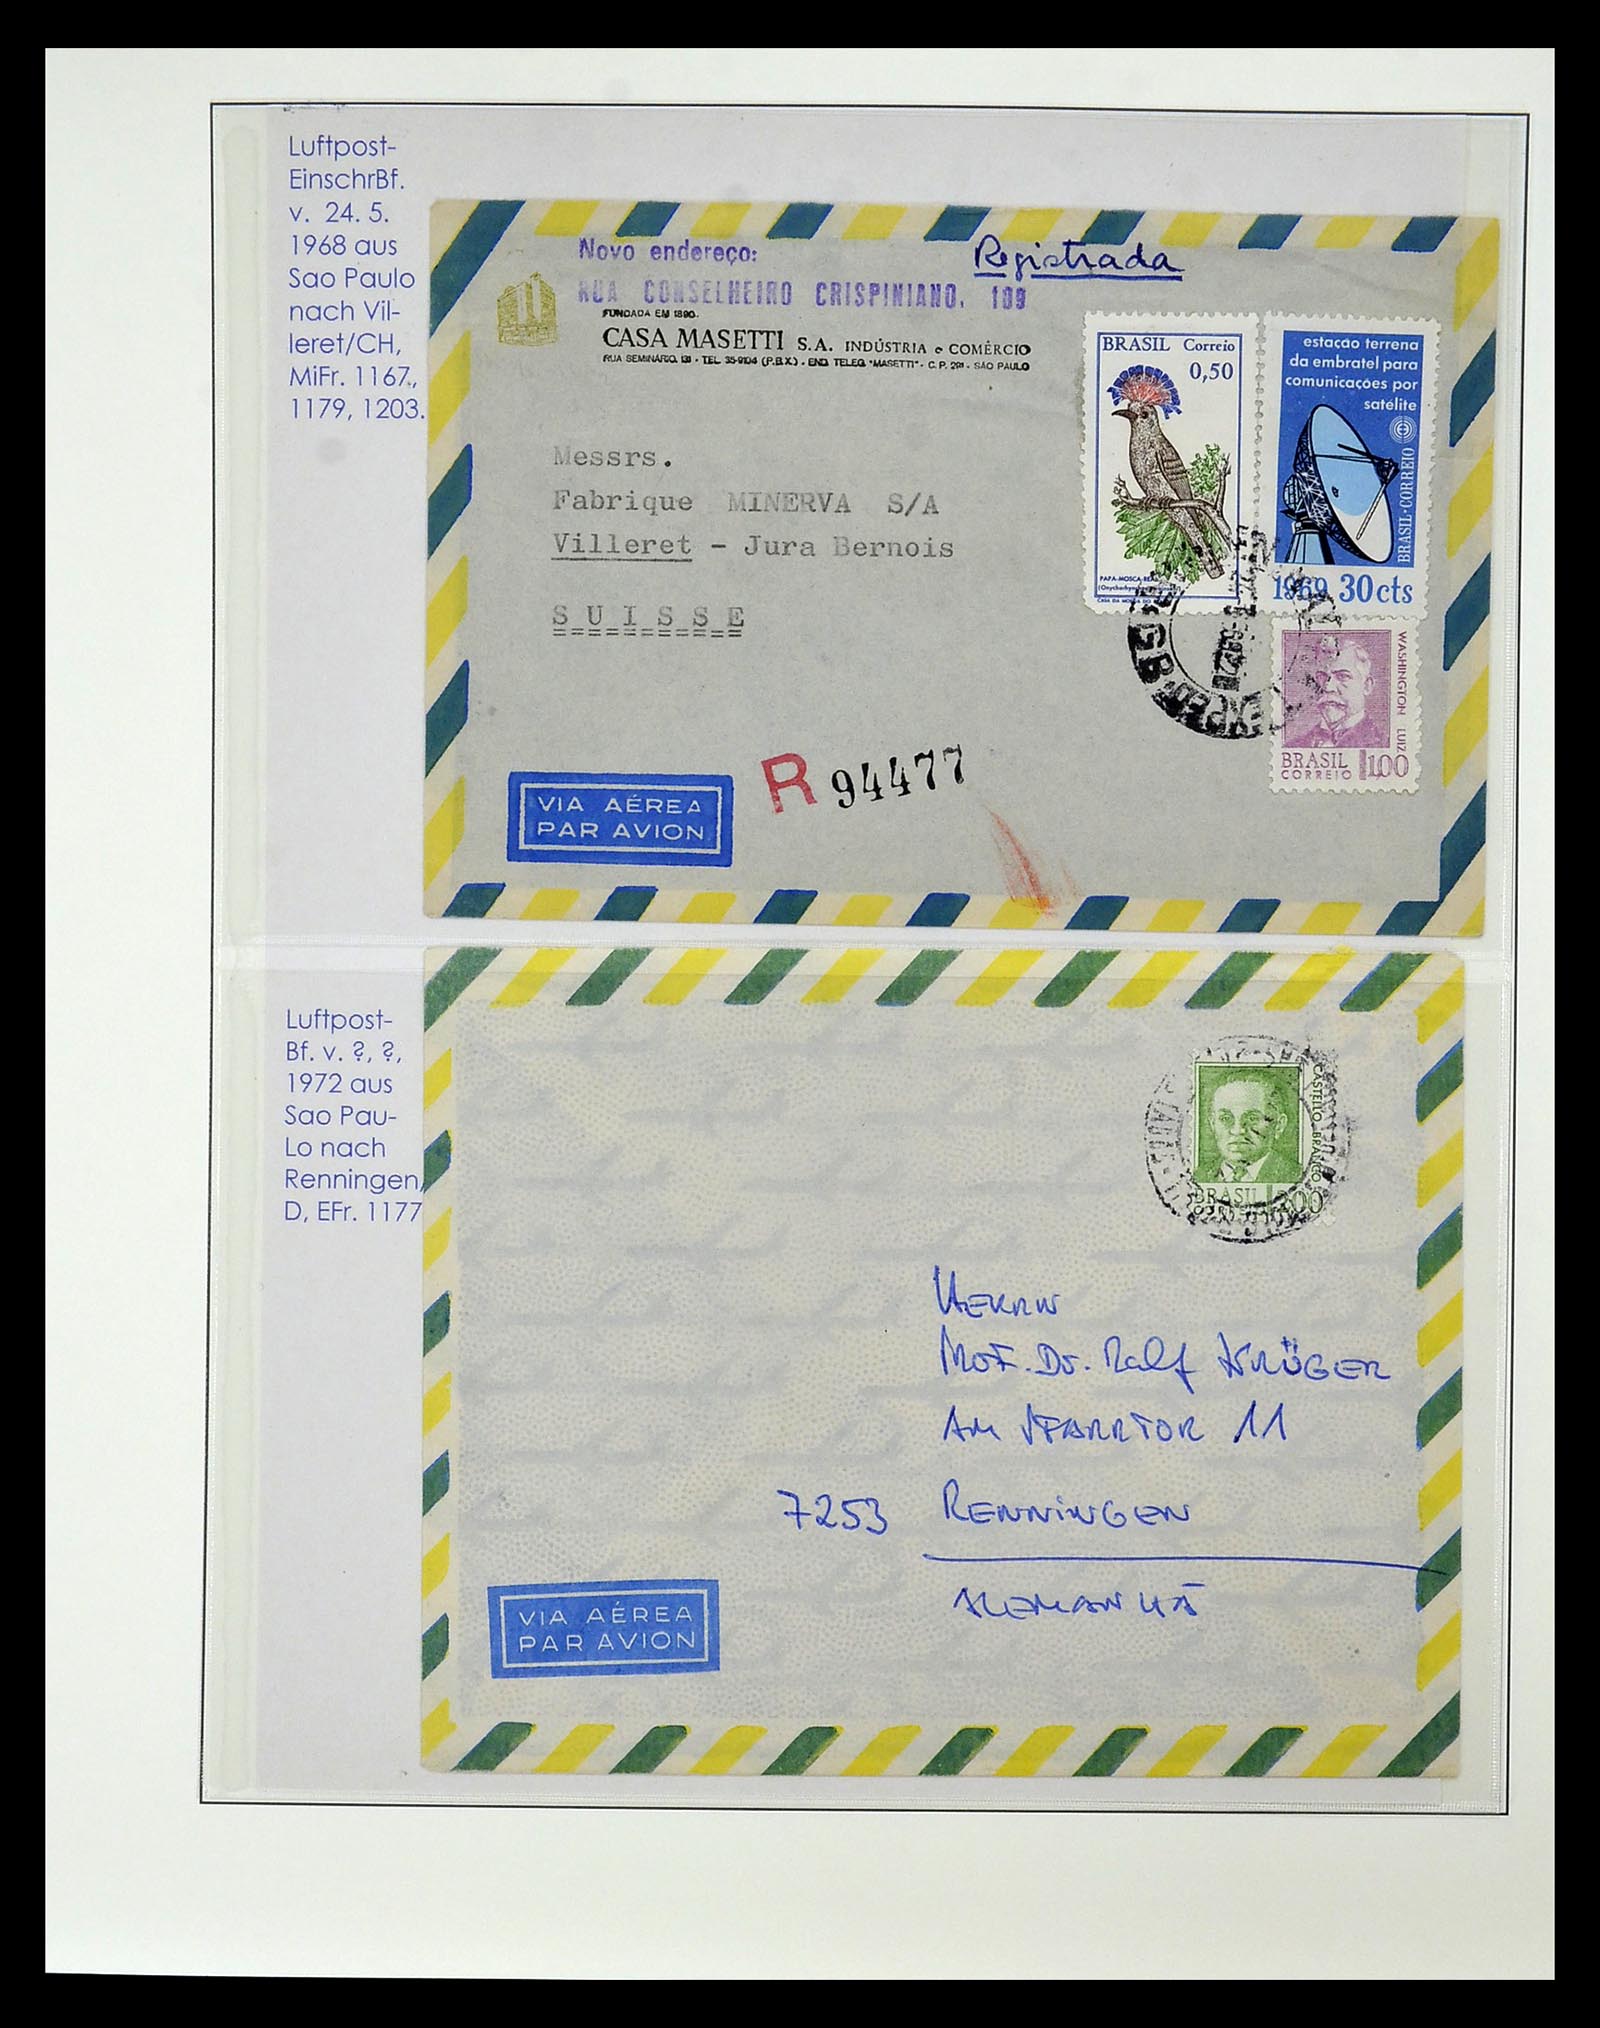 Luftpost-
EinschrBf.
v. 24. 5.
1968 aus
Sao Paulo
nach Vil-
leret/CH,
MiFr. 1167,
1179, 1203.
Novo endereço:
RUA CONSELHEIRO CRISPINIANO, 109
Registrada
FUNDADA EM 1890.
CASA MASETTI S.A. INDÚSTRIA e COMÉRCIO
RUA SEMINÁRIO, 131 - TEL. 35-9104 (P.B.X.) - END. TELEG. "MASETTI" - C. P. 291 - SÃO PAULO
Messrs.
Fabrique MINERVA S/A
Villeret - Jura Bernois
SUISSE
BRASIL Correio
0,50
PAPA-MOSCA-REAL
estação terrena
da embratel para
comunicações por
satélite
BRASIL·CORREIO
1969 30cts
WASHINGTON LUIZ
BRASIL
CORREIO 1,00
VIA AÉREA
PAR AVION
R 94477
Luftpost-
Bf. v. ?, ?,
1972 aus
Sao Pau-
Lo nach
Renningen,
D, EFr. 1177
CASTELLO BRANCO
BRASIL 200
HERRN
PROF. DR. Ralf KRÜGER
AM PFARRTOR 11
7253 RENNINGEN
ALEMANHA
VIA AÉREA
PAR AVION